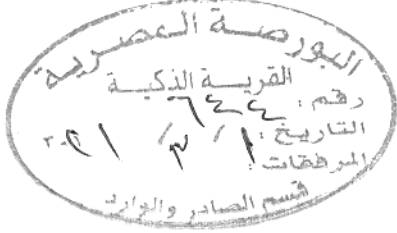 البورصة المصرية
القرية الذكية
رقم : ٦٤٤
التاريخ : ١ / ٣ / ٢٠٢١
المرفقات :
قسم الصادر والوارد